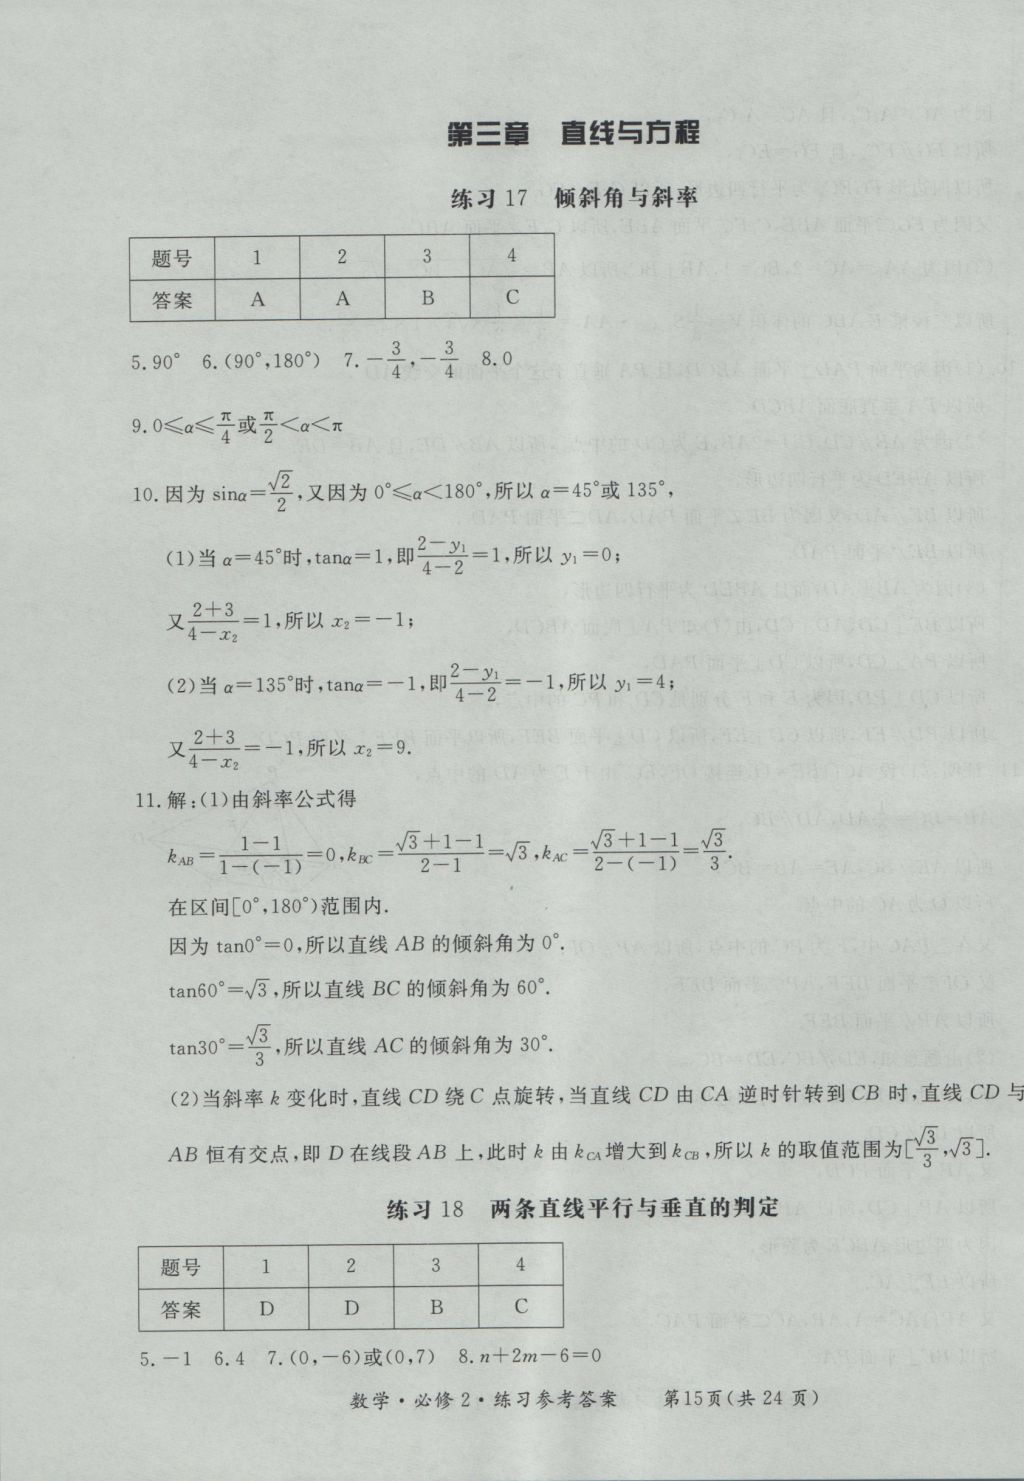 第三章 直线与方程
练习 17 倾斜角与斜率
题号 1 2 3 4
答案 A A B C
5.90° 6.(90°,180°) 7.-3/4,-3/4 8.0
9.0≤α≤π/4或π/2<α<π
10.因为 sinα=√2/2,又因为 0°≤α<180°,所以 α=45°或 135°,
(1)当 α=45°时,tanα=1,即(2-y₁)/(4-2)=1,所以 y₁=0;
又(2+3)/(4-x₂)=1,所以 x₂=-1;
(2)当 α=135°时,tanα=-1,即(2-y₁)/(4-2)=-1,所以 y₁=4;
又(2+3)/(4-x₂)=-1,所以 x₂=9.
11.解:(1)由斜率公式得
k_AB=(1-1)/(1-(-1))=0,k_BC=(√3+1-1)/(2-1)=√3,k_AC=(√3+1-1)/(2-(-1))=√3/3.
在区间[0°,180°)范围内.
因为 tan0°=0,所以直线 AB 的倾斜角为 0°.
tan60°=√3,所以直线 BC 的倾斜角为 60°.
tan30°=√3/3,所以直线 AC 的倾斜角为 30°.
(2)当斜率 k 变化时,直线 CD 绕 C 点旋转,当直线 CD 由 CA 逆时针转到 CB 时,直线 CD 与
AB 恒有交点,即 D 在线段 AB 上,此时 k 由 k_CA增大到 k_CB,所以 k 的取值范围为[√3/3,√3].
练习 18 两条直线平行与垂直的判定
题号 1 2 3 4
答案 D D B C
5.-1 6.4 7.(0,-6)或(0,7) 8.n+2m-6=0
数学·必修 2·练习参考答案 第15页(共 24 页)